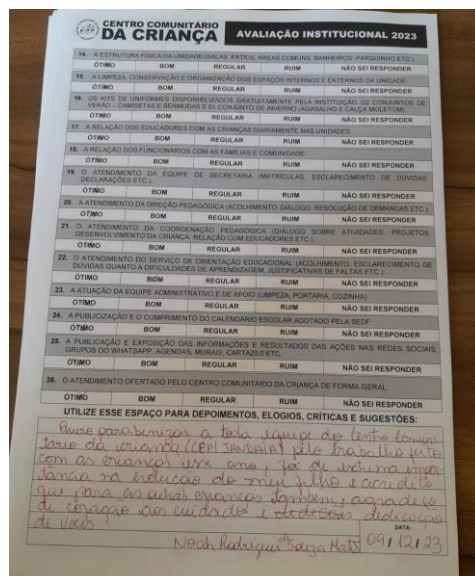 CENTRO COMUNITÁRIO
DA CRIANÇA
AVALIAÇÃO INSTITUCIONAL 2023
14. A ESTRUTURA FÍSICA DA UNIDADE (SALAS, PÁTIOS, ÁREAS COMUNS, BANHEIROS, PARQUINHO ETC.)
ÓTIMO BOM REGULAR RUIM NÃO SEI RESPONDER
15. A LIMPEZA, CONSERVAÇÃO E ORGANIZAÇÃO DOS ESPAÇOS INTERNOS E EXTERNOS DA UNIDADE
ÓTIMO BOM REGULAR RUIM NÃO SEI RESPONDER
16. OS KITS DE UNIFORMES DISPONIBILIZADOS GRATUITAMENTE PELA INSTITUIÇÃO (02 CONJUNTOS DE
VERÃO – CAMISETAS E BERMUDAS E 01 CONJUNTO DE INVERNO (AGASALHO E CALÇA MOLETOM)
ÓTIMO BOM REGULAR RUIM NÃO SEI RESPONDER
17. A RELAÇÃO DOS EDUCADORES COM AS CRIANÇAS DIARIAMENTE NAS UNIDADES
ÓTIMO BOM REGULAR RUIM NÃO SEI RESPONDER
18. A RELAÇÃO DOS FUNCIONÁRIOS COM AS FAMÍLIAS E COMUNIDADE
ÓTIMO BOM REGULAR RUIM NÃO SEI RESPONDER
19. O ATENDIMENTO DA EQUIPE DE SECRETARIA (MATRÍCULAS, ESCLARECIMENTO DE DÚVIDAS,
DECLARAÇÕES ETC.)
ÓTIMO BOM REGULAR RUIM NÃO SEI RESPONDER
20. A ATENDIMENTO DA DIREÇÃO PEDAGÓGICA (ACOLHIMENTO, DIÁLOGO, RESOLUÇÃO DE DEMANDAS ETC.)
ÓTIMO BOM REGULAR RUIM NÃO SEI RESPONDER
21. O ATENDIMENTO DA COORDENAÇÃO PEDAGÓGICA (DIÁLOGO SOBRE ATIVIDADES, PROJETOS,
DESENVOLVIMENTO DA CRIANÇA, RELAÇÃO COM EDUCADORES ETC.)
ÓTIMO BOM REGULAR RUIM NÃO SEI RESPONDER
22. O ATENDIMENTO DO SERVIÇO DE ORIENTAÇÃO EDUCACIONAL (ACOLHIMENTO, ESCLARECIMENTO DE
DÚVIDAS QUANTO A DIFICULDADES DE APRENDIZAGEM, JUSTIFICATIVAS DE FALTAS ETC.)
ÓTIMO BOM REGULAR RUIM NÃO SEI RESPONDER
23. A ATUAÇÃO DA EQUIPE ADMINISTRATIVO E DE APOIO (LIMPEZA, PORTARIA, COZINHA)
ÓTIMO BOM REGULAR RUIM NÃO SEI RESPONDER
24. A PUBLICIZAÇÃO E O CUMPRIMENTO DO CALENDÁRIO ESCOLAR ADOTADO PELA SEDF
ÓTIMO BOM REGULAR RUIM NÃO SEI RESPONDER
25. A PUBLICAÇÃO E EXPOSIÇÃO DAS INFORMAÇÕES E RESULTADOS DAS AÇÕES NAS REDES SOCIAIS,
GRUPOS DO WHATSAPP, AGENDAS, MURAIS, CARTAZES ETC.
ÓTIMO BOM REGULAR RUIM NÃO SEI RESPONDER
26. O ATENDIMENTO OFERTADO PELO CENTRO COMUNITÁRIO DA CRIANÇA DE FORMA GERAL:
ÓTIMO BOM REGULAR RUIM NÃO SEI RESPONDER
UTILIZE ESSE ESPAÇO PARA DEPOIMENTOS, ELOGIOS, CRÍTICAS E SUGESTÕES:
Quero parabenizar a toda equipe do Centro Comuni
tário da criança (CEPI JANDAIA) pelo trabalho feito
com as crianças esse ano, foi de extrema impor
tância na educação do meu filho e acredito
que para as outras crianças também, agradeço
de coração aos cuidados e dedicação
de vocês
DATA:
Noah Rodrigues de Souza Matos 09/12/23